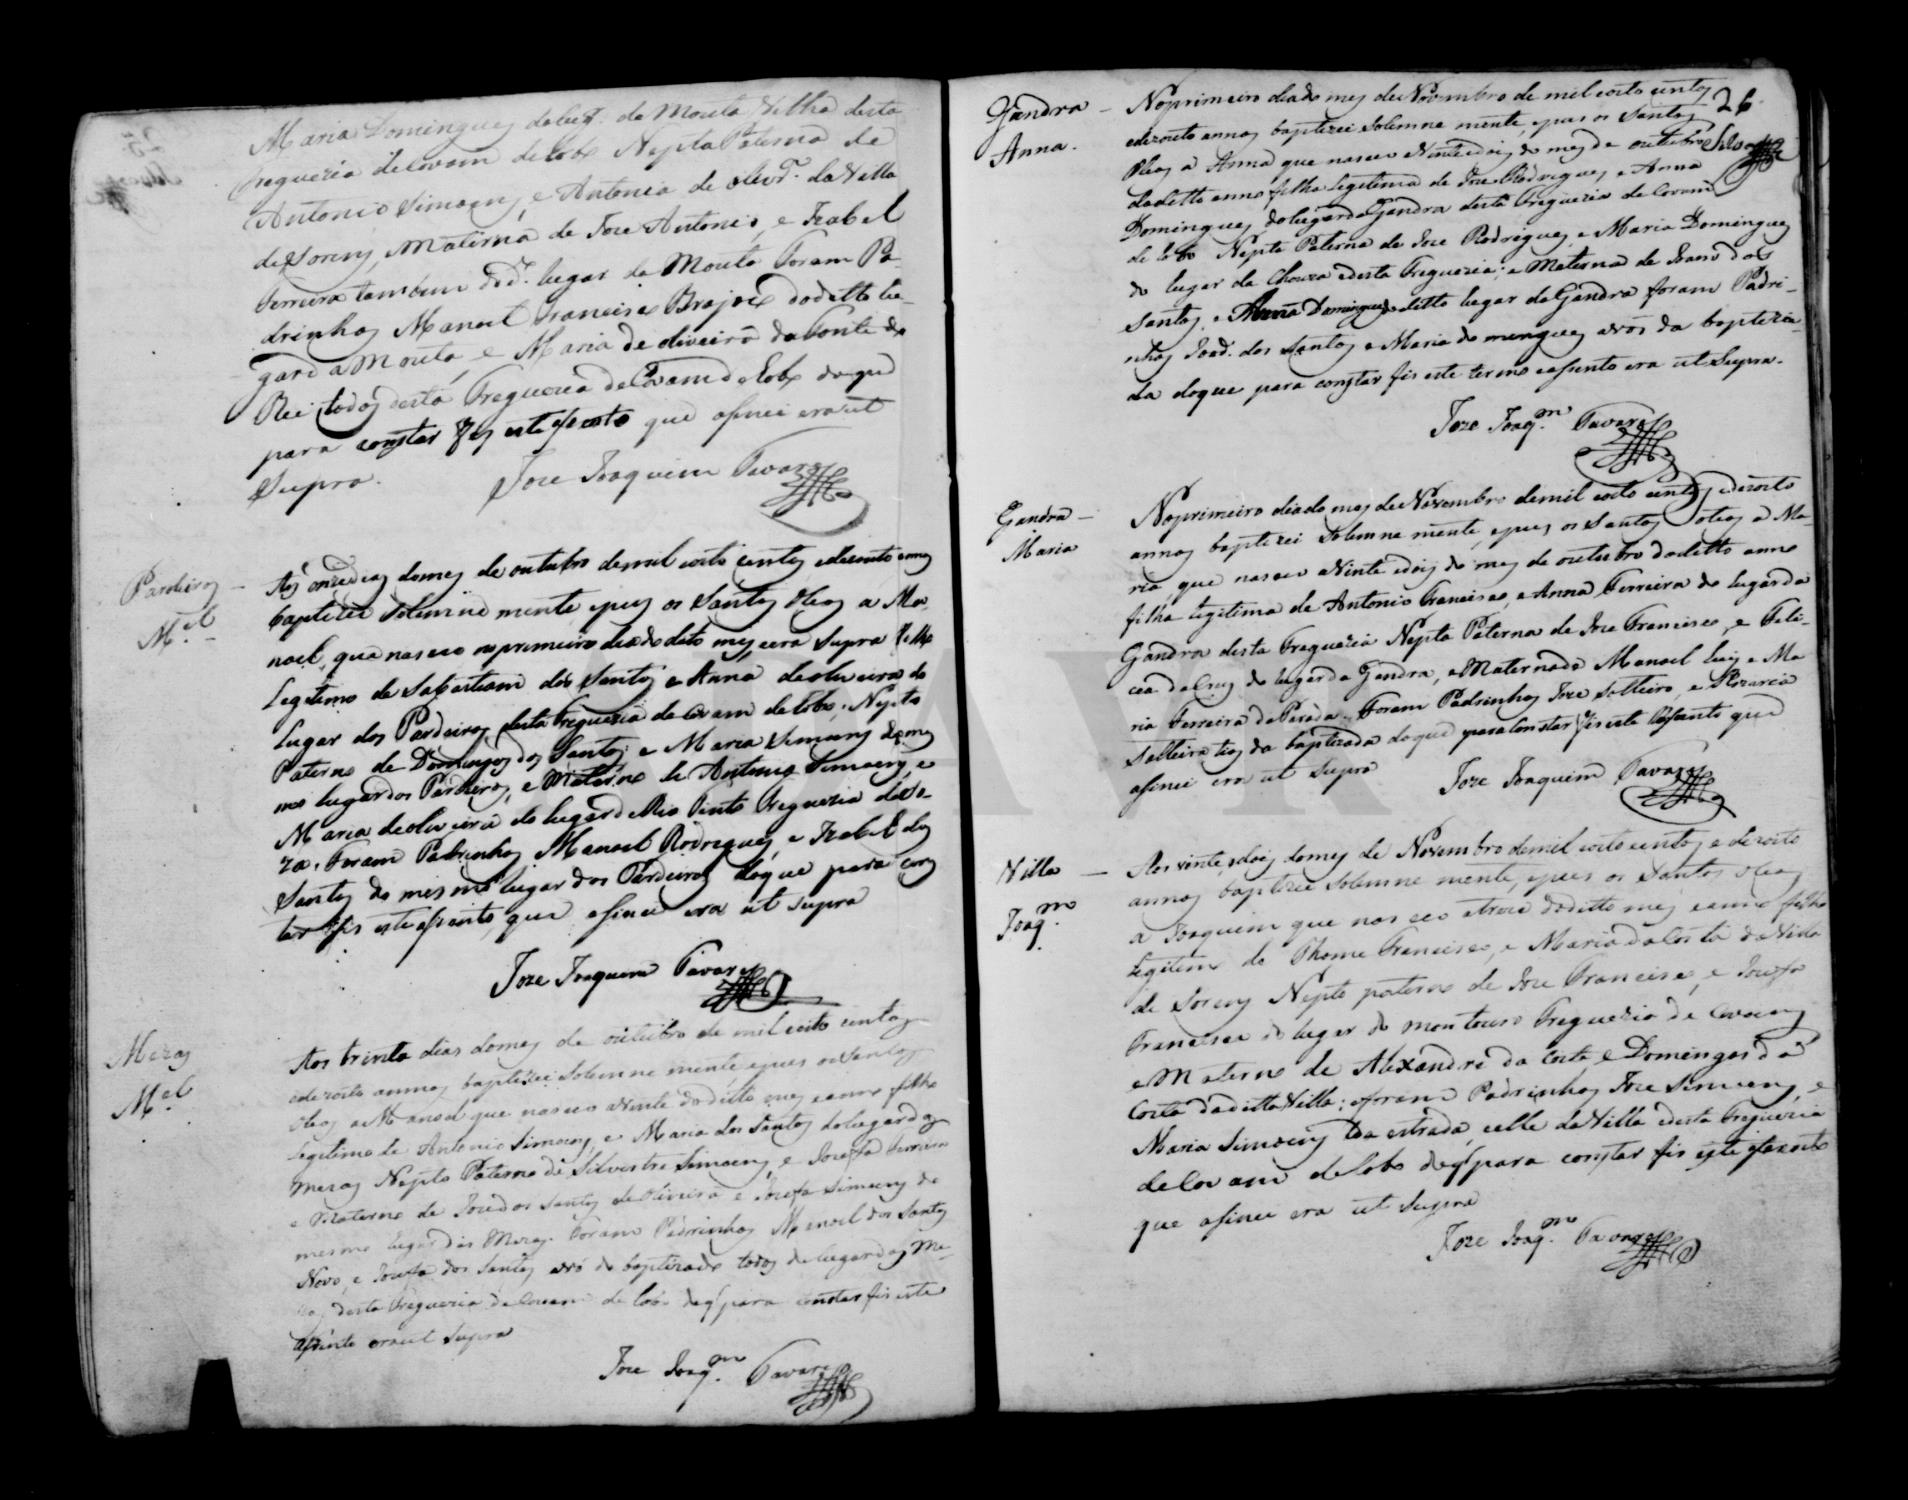 Maria Domingues do lug.r da Mouta Velha desta
freguezia de Covam de Lobo Nepta Paterna de
Antonio Simoens, e Antonia de Olivr.a da Villa
de Sorens, Materna de Joze Antonio, e Izabel
Ferreira tambem do d.o lugar da Mouta Foram Pa-
drinhos Manoel Francisco Brajoeo do ditto lu-
gar da Mouta, e Maria de oliveira da Fonte do
Rei todos desta Freguezia de Covam de Lobo doque
para constar fis este asento que asinei era ut
Supra.
Joze Joaquim Tavares
Pardieiros
M.el
Aos onze dias do mes de outubro de mil oito centos e dezoito annos
baptizei Solemne mente, e pus os Santos Oleos a Ma-
noel, que nasceo no primeiro dia do dito mes, e era Supra filho
Legitimo de Sabastiam dos Santos e Anna de oliveira do
Lugar dos Pardieiros desta freguezia de Covam de Lobo; Nepto
Paterno de Domingos dos Santos e Maria Simoens do mes
mo lugar dos Pardieiros, e Materno de Antonio Simoens, e
Maria de oliveira do lugar de Rio Tinto Freguezia de So-
za. Foram Padrinhos Manoel Rodrigues, e Izabel dos
Santos do mesmo lugar dos Pardieiros doque para cons
tar fis este asento, que asinei era ut supra
Joze Joaquim Tavares
Mezas
M.el
Aos trinta dias do mes de outubro de mil oito centos
e dezoito annos baptizei Solemne mente, e pus os Santos
Oleos a Manoel que nasceo a vinte do ditto mes e anno filho
Legitimo de Antonio Simoens, e Maria dos Santos do lugar das
Mezas Nepto Paterno de Silvestre Simoens, e Josefa Ferreira
e Materno de Joze dos Santos de Oliveira e Josefa Simoens do
mesmo lugar das Mezas. Foram Padrinhos Manoel dos Santos
Novo, e Josefa dos Santos avó do baptizado todos do lugar das Me-
zas desta Freguezia de Covam de Lobo doq' para constar fis este
asento era ut supra
Joze Joaq.m Tavares
26
Silva
Gandra
Anna.
No primeiro dia do mes de Novembro de mil oito centos
e dezouto annos baptizei Solemne mente, e pus os Santos
Oleos a Anna que nasceo a vinte e dois do mes de outubro
do ditto anno, filha Legitima de Joze Rodrigues, e Anna
Domingues, do lugar da Gandra desta Freguezia de Covam
de Lobo Nepta Paterna de Joze Rodrigues, e Maria Domingues
do lugar da Chouza e desta Freguezia; e Materna de Joam dos
Santos, e Anna Domingues do ditto lugar da Gandra foram Padri-
nhos Joaõ dos Santos e Maria do mungues avós da baptiza-
da doque para constar fis este termo e asento era ut Supra.
Joze Joaq.m Tavares
Gandra
Maria
No primeiro dia do mes de Novembro de mil oito centos e dezoito
annos baptizei Solemne mente, e pus os Santos Oleos a Ma-
ria, que nasceo a vinte e dois do mes de outubro do ditto anno
filha legitima de Antonio Francisco, e Anna Ferreira do lugar da
Gandra desta Freguezia Nepta Paterna de Joze Francisco, e Feli-
cia da Cruz do lugar da Gandra, e Materna de Manoel Luis e Ma-
ria Ferreira da Parada. Foram Padrinhos Joze Solteiro, e Rozaria
Solteira tios da baptizada doque para Constar fis este Asento que
asinei era ut supra
Joze Joaquim Tavares
Villa
Joaq.m
Aos vinte, e dois do mes de Novembro de mil oito centos e dezoito
annos baptizei Solemne mente, e pus os Santos Oleos
a Joaquim que nasceo a treze do ditto mes e anno filho
Legitimo de Thome Francisco, e Maria da Costa da Villa
de Sorens Nepto paterno de Joze Francisco, e Josefa
Francisca do lugar de Montouro Freguezia de Covoens
e Materno de Alexandre da Costa e Domingas da
Costa da ditta Villa; foram Padrinhos Joze Simoens, e
Maria Simoens da estrada, e elle da Villa e desta Freguezia
de Covam de Lobo doq' para constar fis este asento
que asinei era ut supra
Joze Joaq.m Tavares